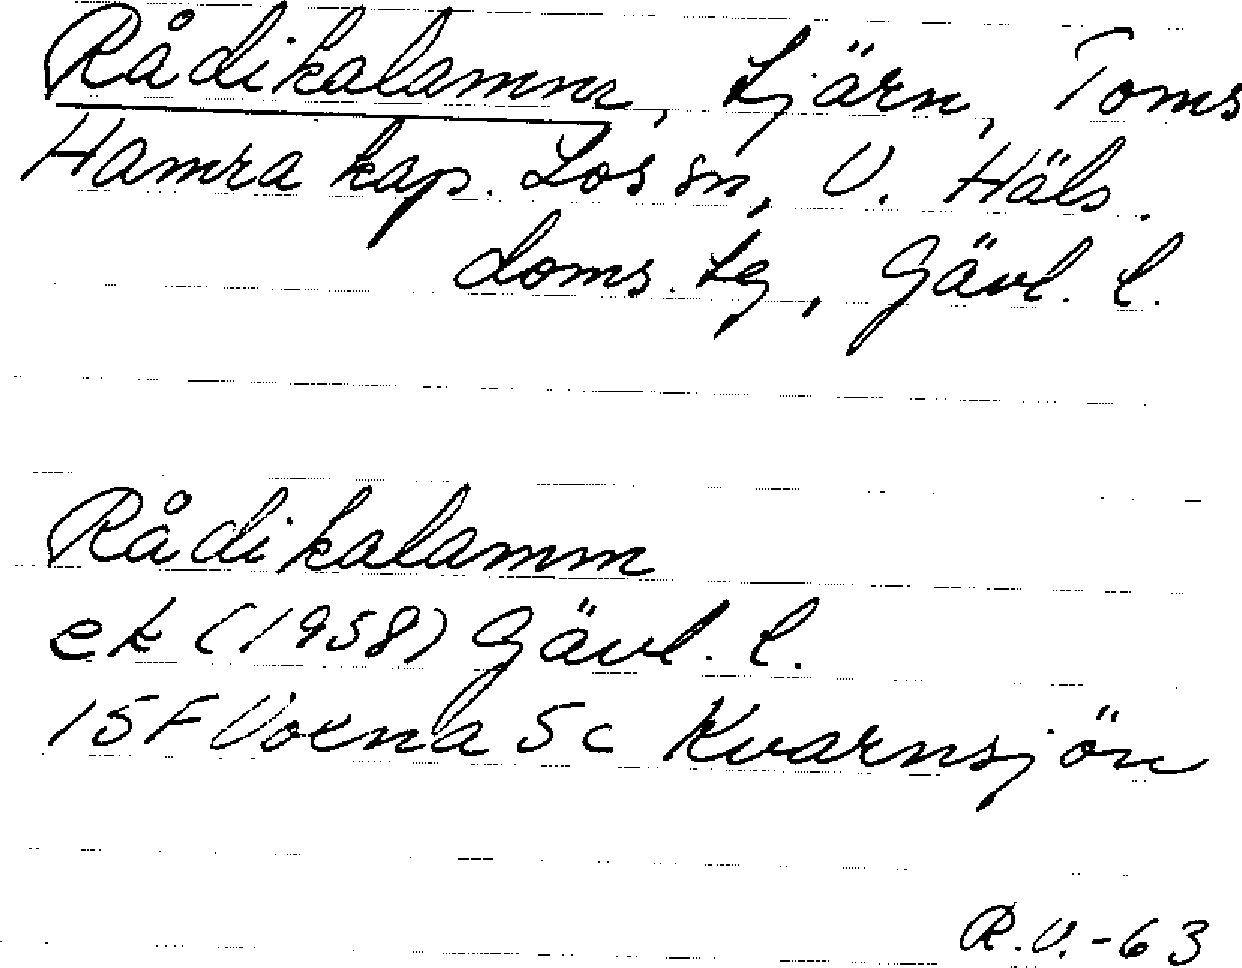 Rådikalamm, tjärn, Toms
Hamra kap. Los sn, V. Häls.
doms. tg, Gävl. l.
Rådikalamm
ek (1958) Gävl. l.
15F Voxna 5c Kvarnsjön
R.V.-63